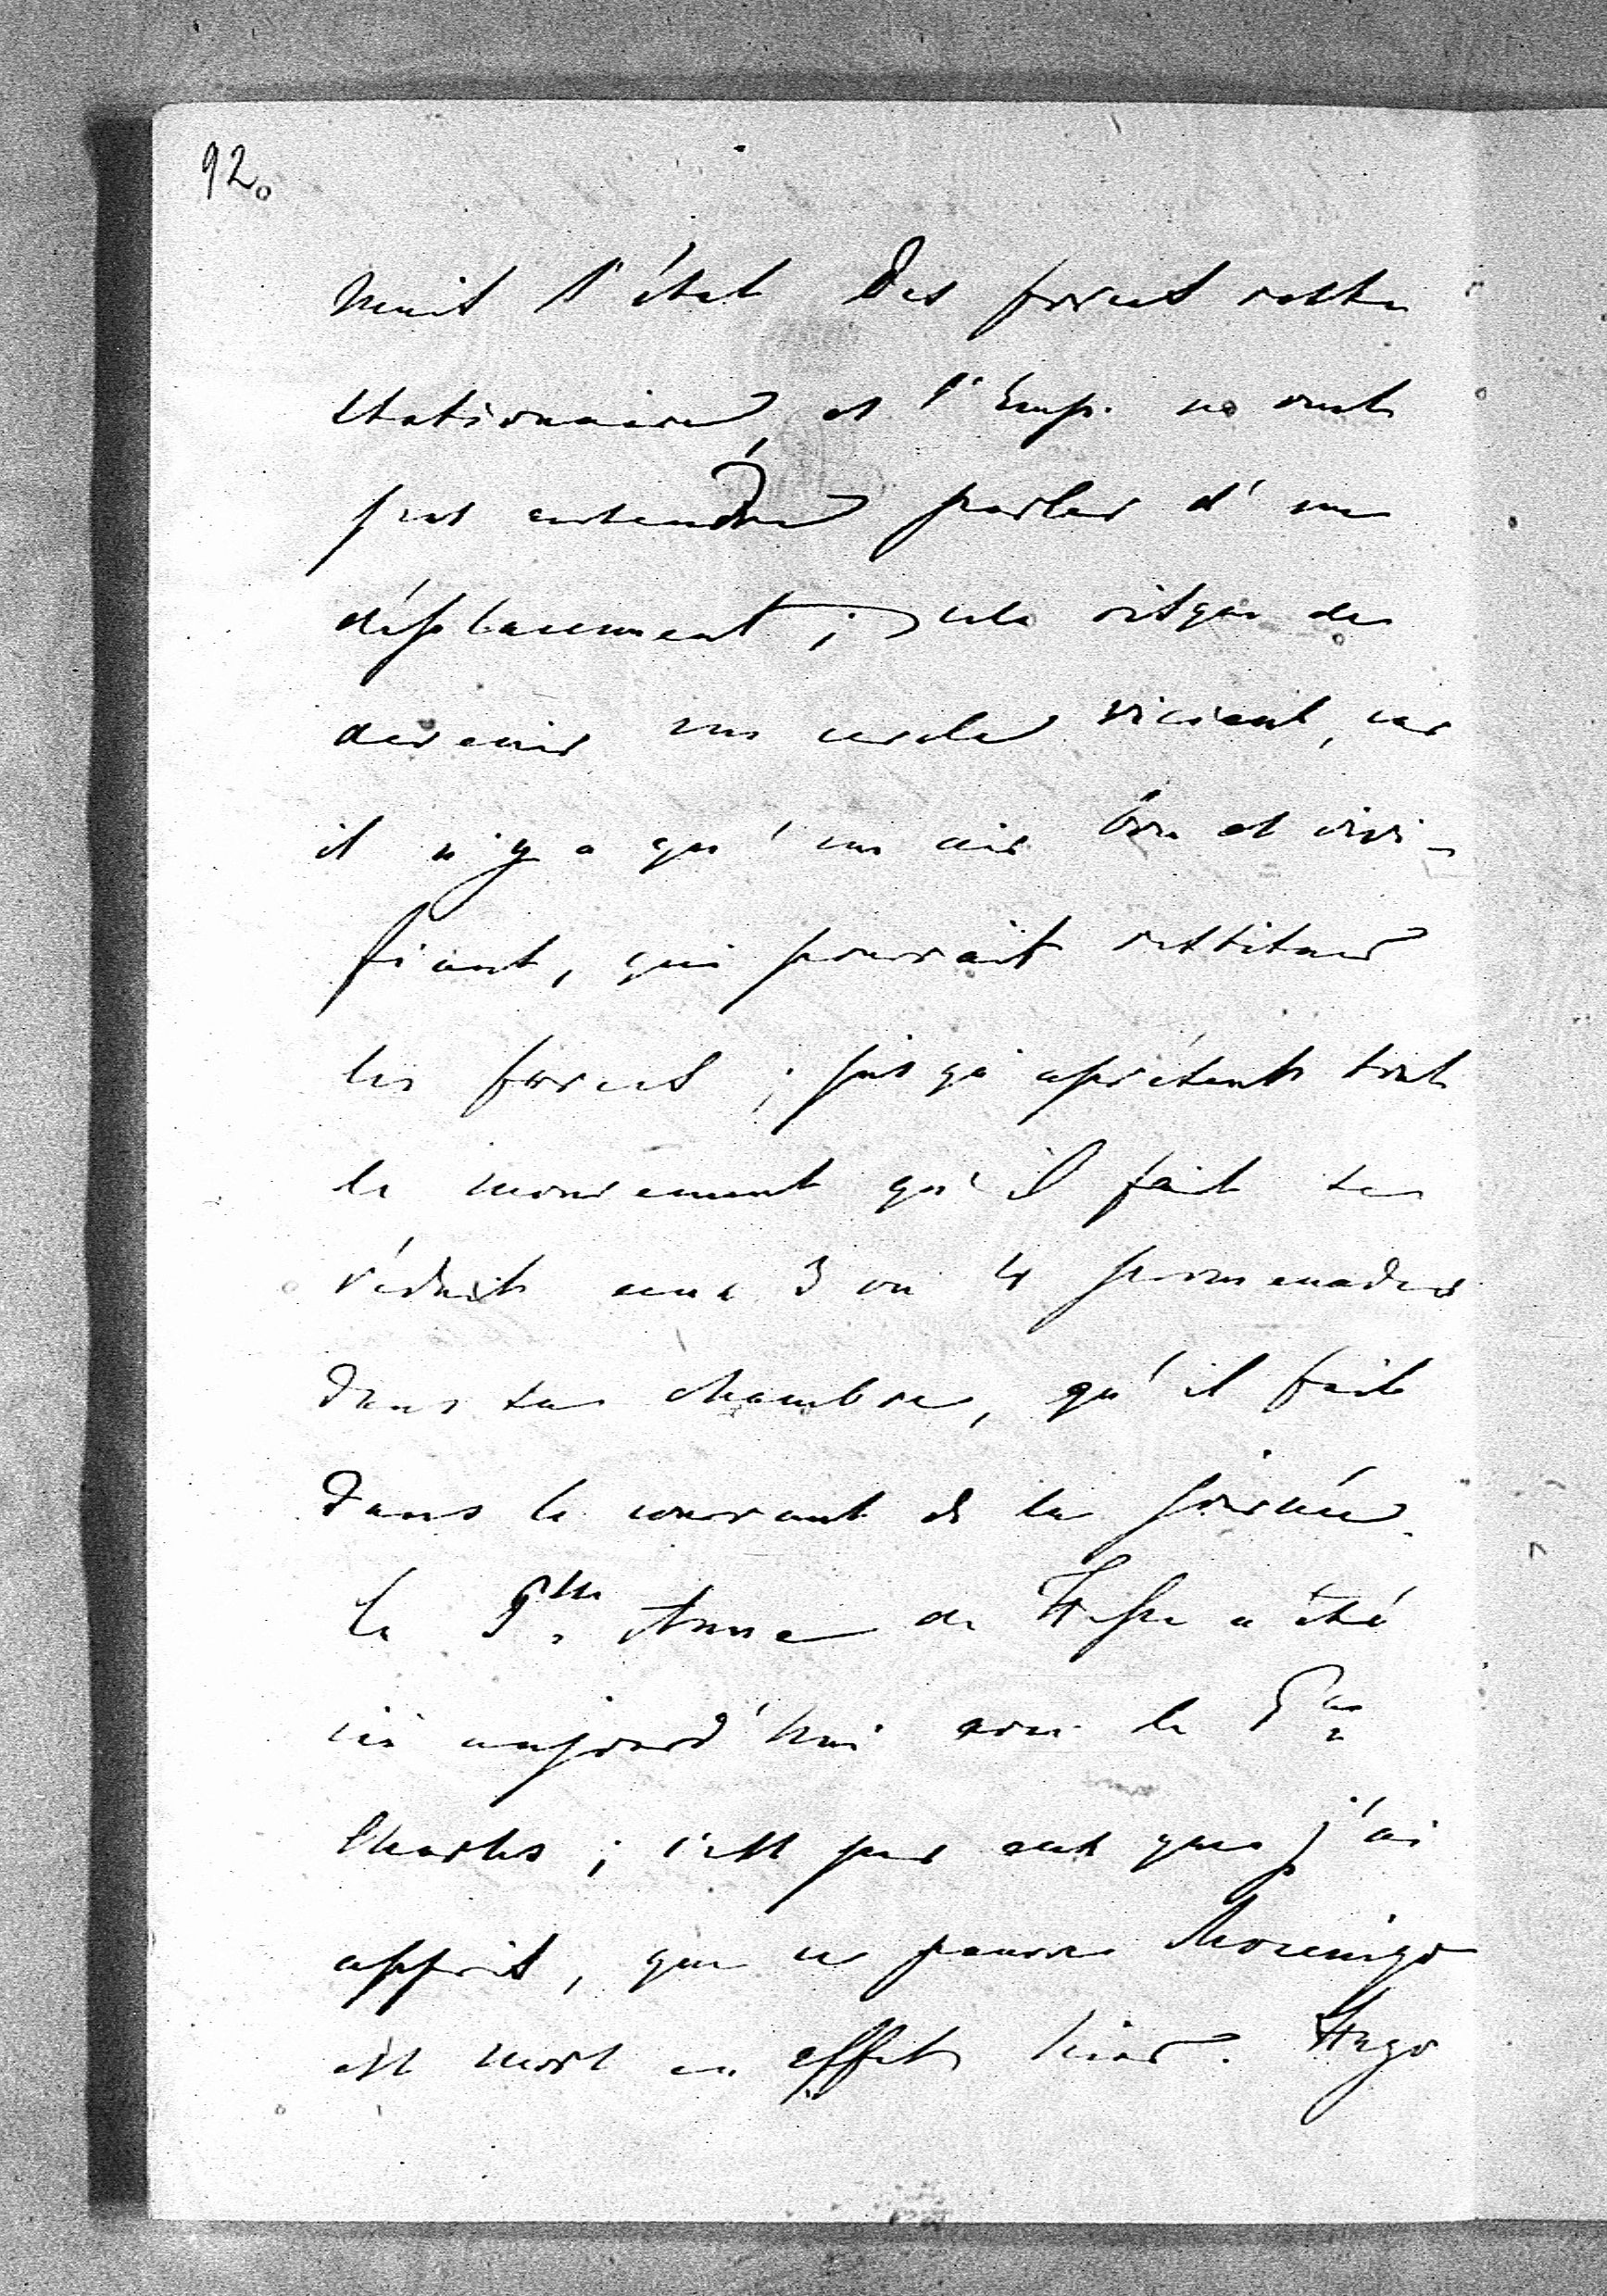 92.
mais l'état des forces reste
stationnaire, et l'Emp. ne veut
pas entendre parler d'un
déplacement; cela risque de
devenir un cercle vicieux, car
il n'y a qu'un air bon et vivi-
fiant, qui pourrait restituer
les forces; jusqu'aprésent tout
le mouvement qu'il fait se
réduit aux 3 ou 4 promenades
dans sa chambre, qu'il fait
dans le courant de la journée.
la Psse Anne de Hesse a été
ici aujourd'hui avec la Psse
Charles; c'est par eux que j'ai
appris, que ce pauvre Mocenigo
est mort en effet hier. Hugo